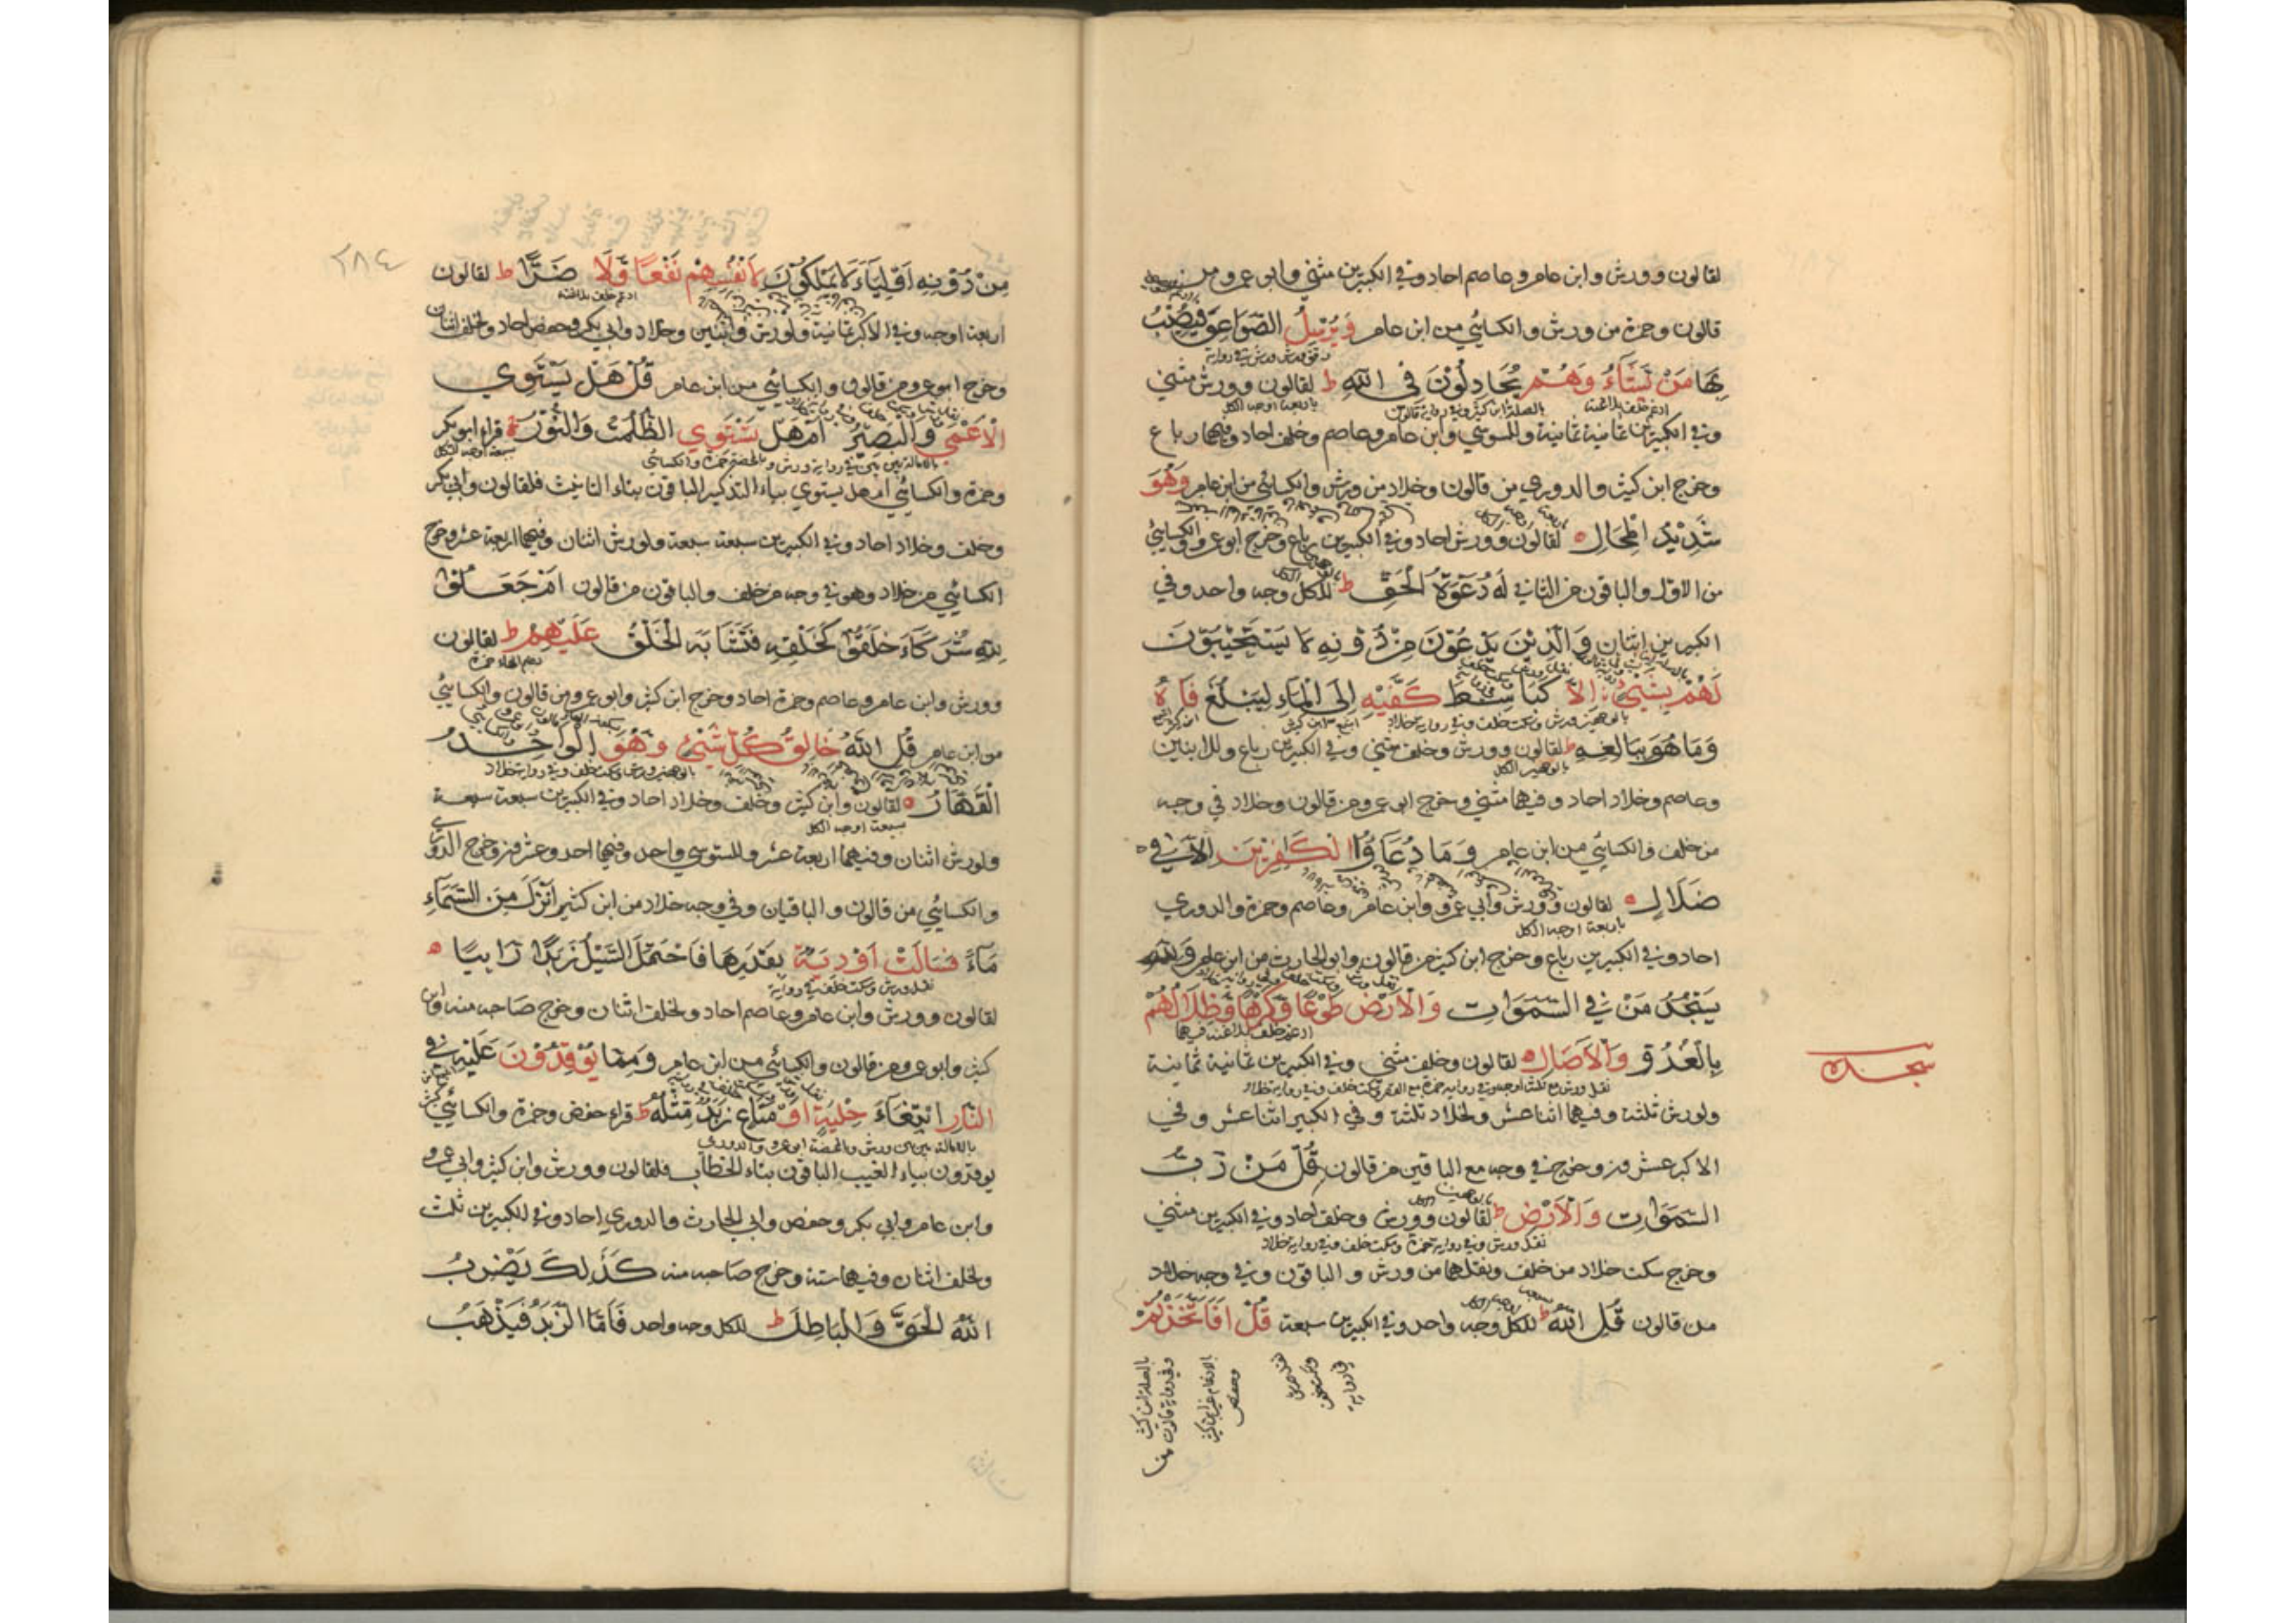 لقالون وورش وابن عامر وعاصم احاد وفي الكبيرين مثني وابو عمرو من
قالون وحمزة من ورش والكسائي من ابن عامر وَيُرْسِلُ الصَّوَاعِقَ فَيُصِيْبُ
رقق ورش ورش في رواية
بِهَا مَنْ يَّشَآءُ وَهُمْ يُجَادِلُوْنَ فِي اللهِ ط لقالون وورش مثني
ادغم خلف بلاغنة بالصلة ابن كثير وفي رواية قالون باربعة اوجه الكل
وفي الكبيرين ثمانية ثمانية وللسوسي وابن عامر وعاصم وخلف احاد وفيهما رباع
وخرج ابن كثير والدوري من قالون وخلاد من ورش والكسائي من ابن عامر وَهُوَ
شَدِيْدُ الْمِحَالِ لقالون وورش احاد وفي الكبيرين رباع وخرج ابو عمرو والكسائي
من الاول والباقون من الثاني لَهُ دَعْوَةُ الْحَقِّ ط للكل وجه واحد وفي
الكبيرين اثنان وَالَّذِيْنَ يَدْعُوْنَ مِنْ دُوْنِهِ لَا يَسْتَجِيْبُوْنَ
لَهُمْ بِشَيْءٍ اِلَّا كَبَاسِطِ كَفَّيْهِ اِلَى الْمَاءِ لِيَبْلُغَ فَاهُ
وَمَا هُوَ بِبَالِغِهِ ط لقالون وورش وخلف مثني وفي الكبيرين رباع وللابنين
وعاصم وخلاد احاد وفيهما مثني وخرج ابو عمرو من قالون وخلاد في وجه
من خلف والكسائي من ابن عامر وَمَا دُعَاؤُا الْكَافِرِيْنَ اِلَّا فِي
ضَلَالٍ لقالون وورش وابي عمرو وابن عامر وعاصم وحمزة والدوري
باربعة اوجه الكل
احاد وفي الكبيرين رباع وخرج ابن كثير من قالون وابو الحارث من ابن عامر وَلِلّٰهِ
يَسْجُدُ مَنْ فِي السَّمٰوَاتِ وَالْاَرْضِ طَوْعًا وَّكَرْهًا وَّظِلَالُهُمْ
ادغم خلف بلاغنة فيهما
بِالْغُدُوِّ وَالْاٰصَالِ لقالون وخلف مثني وفي الكبيرين ثمانية ثمانية
سجده
ولورش ثلثة وفيهما اثنا عشر ولخلاد ثلثة وفي الكبير اثنا عشر وفي
الاكبر عشرون وخرج في وجه مع الباقين من قالون قُلْ مَنْ رَّبُّ
السَّمٰوَاتِ وَالْاَرْضِ ط لقالون وورش وخلف احاد وفي الكبيرين مثني
نقل ورش وفي رواية حمزة وسكت خلف وفي رواية خلاد
وخرج سكت خلاد من خلف ونقلهما من ورش والباقون وفي وجه خلاد
من قالون قُلِ اللهُ ط للكل وجه واحد وفي الكبيرين سبعة قُلْ اَفَاتَّخَذْتُمْ
بالصلة ابن كثير
وفي رواية قالون
بالادغام غير ابن كثير
وحفص
نقل ورش
وسكت خلف
في رواية
٢٨٤
مِنْ دُوْنِهِ اَوْلِيَآءَ لَا يَمْلِكُوْنَ لِاَنْفُسِهِمْ نَفْعًا وَّلَا ضَرًّا ط لقالون
ادغم خلف بلاغنة
اربعة اوجه وفي الاكبر ثمانية ولورش واثنين وخلاد وابي بكر وحفص احاد ولخلف اثنان
وخرج ابو عمرو من قالون والكسائي من ابن عامر قُلْ هَلْ يَسْتَوِي
الْاَعْمٰى وَالْبَصِيْرُ اَمْ هَلْ تَسْتَوِي الظُّلُمٰتُ وَالنُّوْرُ قراء ابو بكر
بالامالة بين بين في رواية ورش والمحضة حمزة والكسائي سبعة اوجه الكل
وحمزة والكسائي ام هل يستوي بياء التذكير الباقون بتاء التانيث فلقالون وابي بكر
وخلف وخلاد احاد وفي الكبيرين سبعة سبعة ولورش اثنان وفيهما اربعة عشر وخرج
الكسائي من خلاد وهو في وجه من خلف والباقون من قالون اَمْ جَعَلُوْا
لِلّٰهِ شُرَكَآءَ خَلَقُوْا كَخَلْقِهِ فَتَشَابَهَ الْخَلْقُ عَلَيْهِمْ ط لقالون
بضم الهاء حمزة
وورش وابن عامر وعاصم وحمزة احاد وخرج ابن كثير وابو عمرو من قالون والكسائي
من ابن عامر قُلِ اللهُ خَالِقُ كُلِّ شَيْءٍ وَّهُوَ الْوَاحِدُ
بالوجهين ورش وسكت خلف وفي رواية خلاد
الْقَهَّارُ لقالون وابن كثير وخلف وخلاد احاد وفي الكبيرين سبعة سبعة
سبعة اوجه الكل
ولورش اثنان وفيهما اربعة عشر وللسوسي واحد وفيهما احد وعشرون وخرج الدوري
والكسائي من قالون والباقيان وفي وجه خلاد من ابن كثير اَنْزَلَ مِنَ السَّمَآءِ
مَآءً فَسَالَتْ اَوْدِيَةٌ بِقَدَرِهَا فَاحْتَمَلَ السَّيْلُ زَبَدًا رَّابِيًا
نقل ورش وسكت خلف في رواية
لقالون وورش وابن عامر وعاصم احاد ولخلف اثنان وخرج صاحبه منه وابن
كثير وابو عمرو من قالون والكسائي من ابن عامر وَمِمَّا يُوْقِدُوْنَ عَلَيْهِ فِي
النَّارِ ابْتِغَآءَ حِلْيَةٍ اَوْ مَتَاعٍ زَبَدٌ مِّثْلُهُ ط قراء حفص وحمزة والكسائي
بالامالة بين بين ورش والمحضة ابو عمرو والدوري
يوقدون بياء الغيب الباقون بتاء الخطاب فلقالون وورش وابن كثير وابي عمرو
وابن عامر وابي بكر وحفص وابي الحارث والدوري احاد وفي الكبيرين ثلث
ولخلف اثنان وفيهما ستة وخرج صاحبه منه كَذٰلِكَ يَضْرِبُ
اللهُ الْحَقَّ وَالْبَاطِلَ ط للكل وجه واحد فَاَمَّا الزَّبَدُ فَيَذْهَبُ